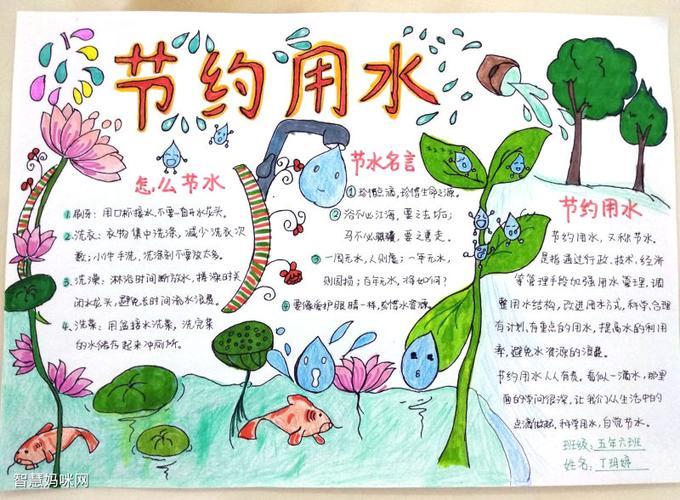 节约用水
怎么节水
1 刷牙：用口杯接水，不要一直开水龙头。
2. 洗衣：衣物集中洗涤，减少洗衣次
数；小件手洗，洗涤剂不要放太多。
3. 洗澡：淋浴时间断放水，搓澡时关
闭水龙头，避免长时间流水浪费。
4. 洗菜：用盆接水洗菜，洗完菜
的水储存起来冲厕所。
节水名言
① 珍惜点滴，珍惜生命之源。
② 浴不必江海，要之去垢；
马不必骐骥，要之善走。
③ 一周无水，人则危；一年无水，
则国损；百年无水，将如何？
④ 要像爱护眼睛一样，珍惜水资源。
节约用水
节约用水，又称节水。
是指通过行政、技术、经济
等管理手段加强用水管理，调
整用水结构，改进用水方式，科学、合理
有计划、有重点的用水，提高水的利用
率，避免水资源的浪费。
节约用水人人有责。看似一滴水，那里
面的学问很深，让我们从生活中的
点滴做起，科学用水，自觉节水。
班级：五年六班
姓名：丁玥婷
智慧妈咪网